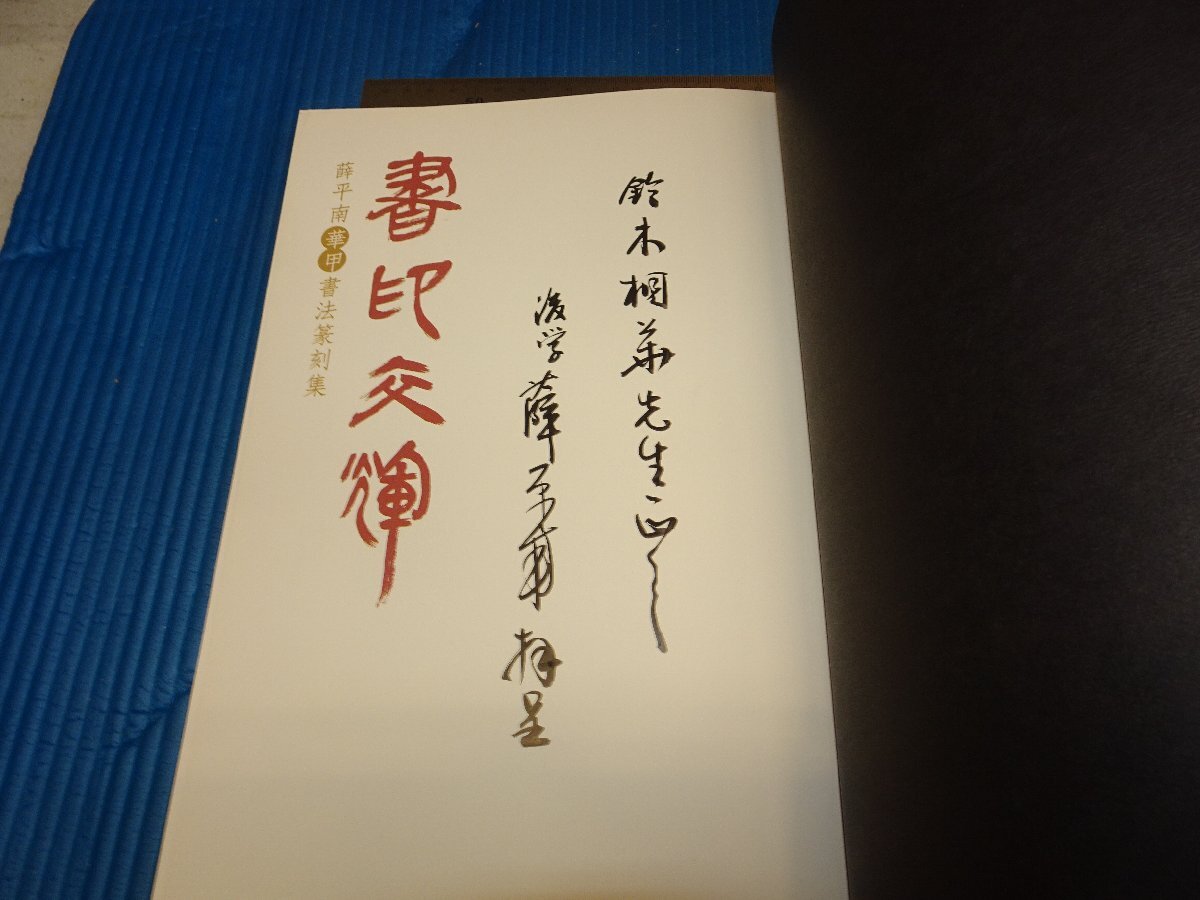 鈴木桐華先生正之
後学薛平南拜呈
書印交輝
薛平南華甲書法篆刻集